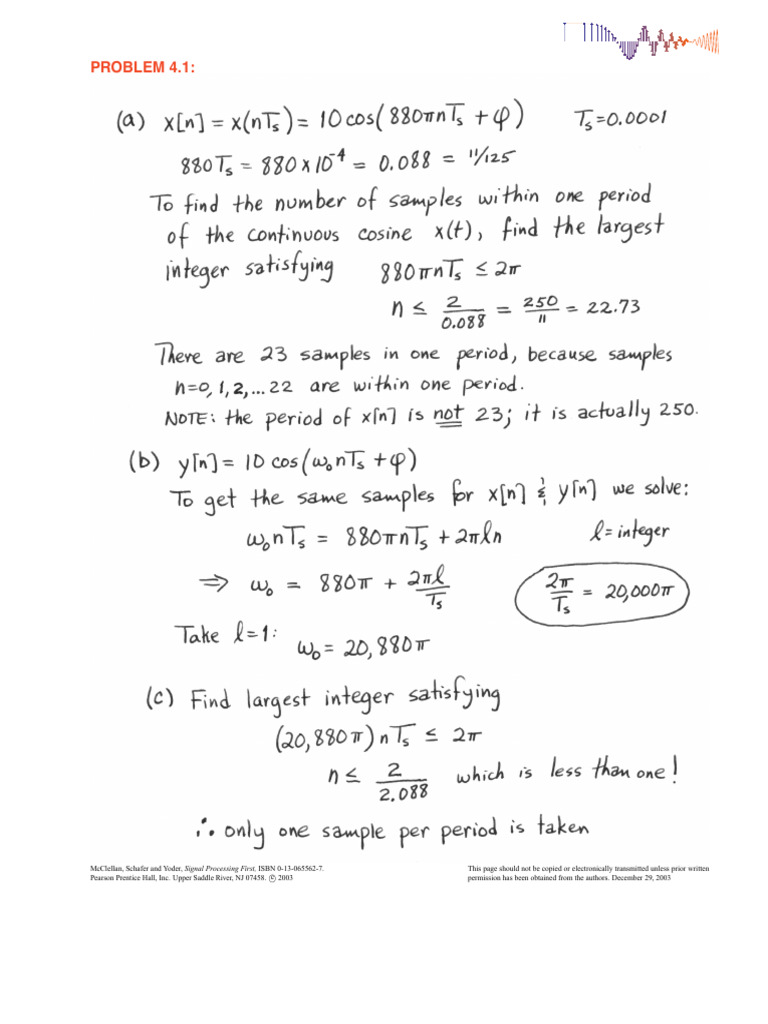 PROBLEM 4.1:
(a) x[n] = x(nTₛ) = 10 cos(880πnTₛ + φ) Tₛ=0.0001
880Tₛ = 880 × 10⁻⁴ = 0.088 = 11/125
To find the number of samples within one period
of the continuous cosine x(t), find the largest
integer satisfying 880πnTₛ ≤ 2π
n ≤ 2/0.088 = 250/11 = 22.73
There are 23 samples in one period, because samples
n=0, 1, 2, ... 22 are within one period.
NOTE: the period of x[n] is not 23; it is actually 250.
(b) y[n] = 10 cos(ω₀nTₛ + φ)
To get the same samples for x[n] & y[n] we solve:
ω₀nTₛ = 880πnTₛ + 2πℓn ℓ = integer
⇒ ω₀ = 880π + 2πℓ/Tₛ 2π/Tₛ = 20,000π
Take ℓ=1: ω₀ = 20,880π
(c) Find largest integer satisfying
(20,880π) nTₛ ≤ 2π
n ≤ 2/2.088 which is less than one!
∴ only one sample per period is taken
McClellan, Schafer and Yoder, Signal Processing First, ISBN 0-13-065562-7.
Pearson Prentice Hall, Inc. Upper Saddle River, NJ 07458. © 2003
This page should not be copied or electronically transmitted unless prior written
permission has been obtained from the authors. December 29, 2003